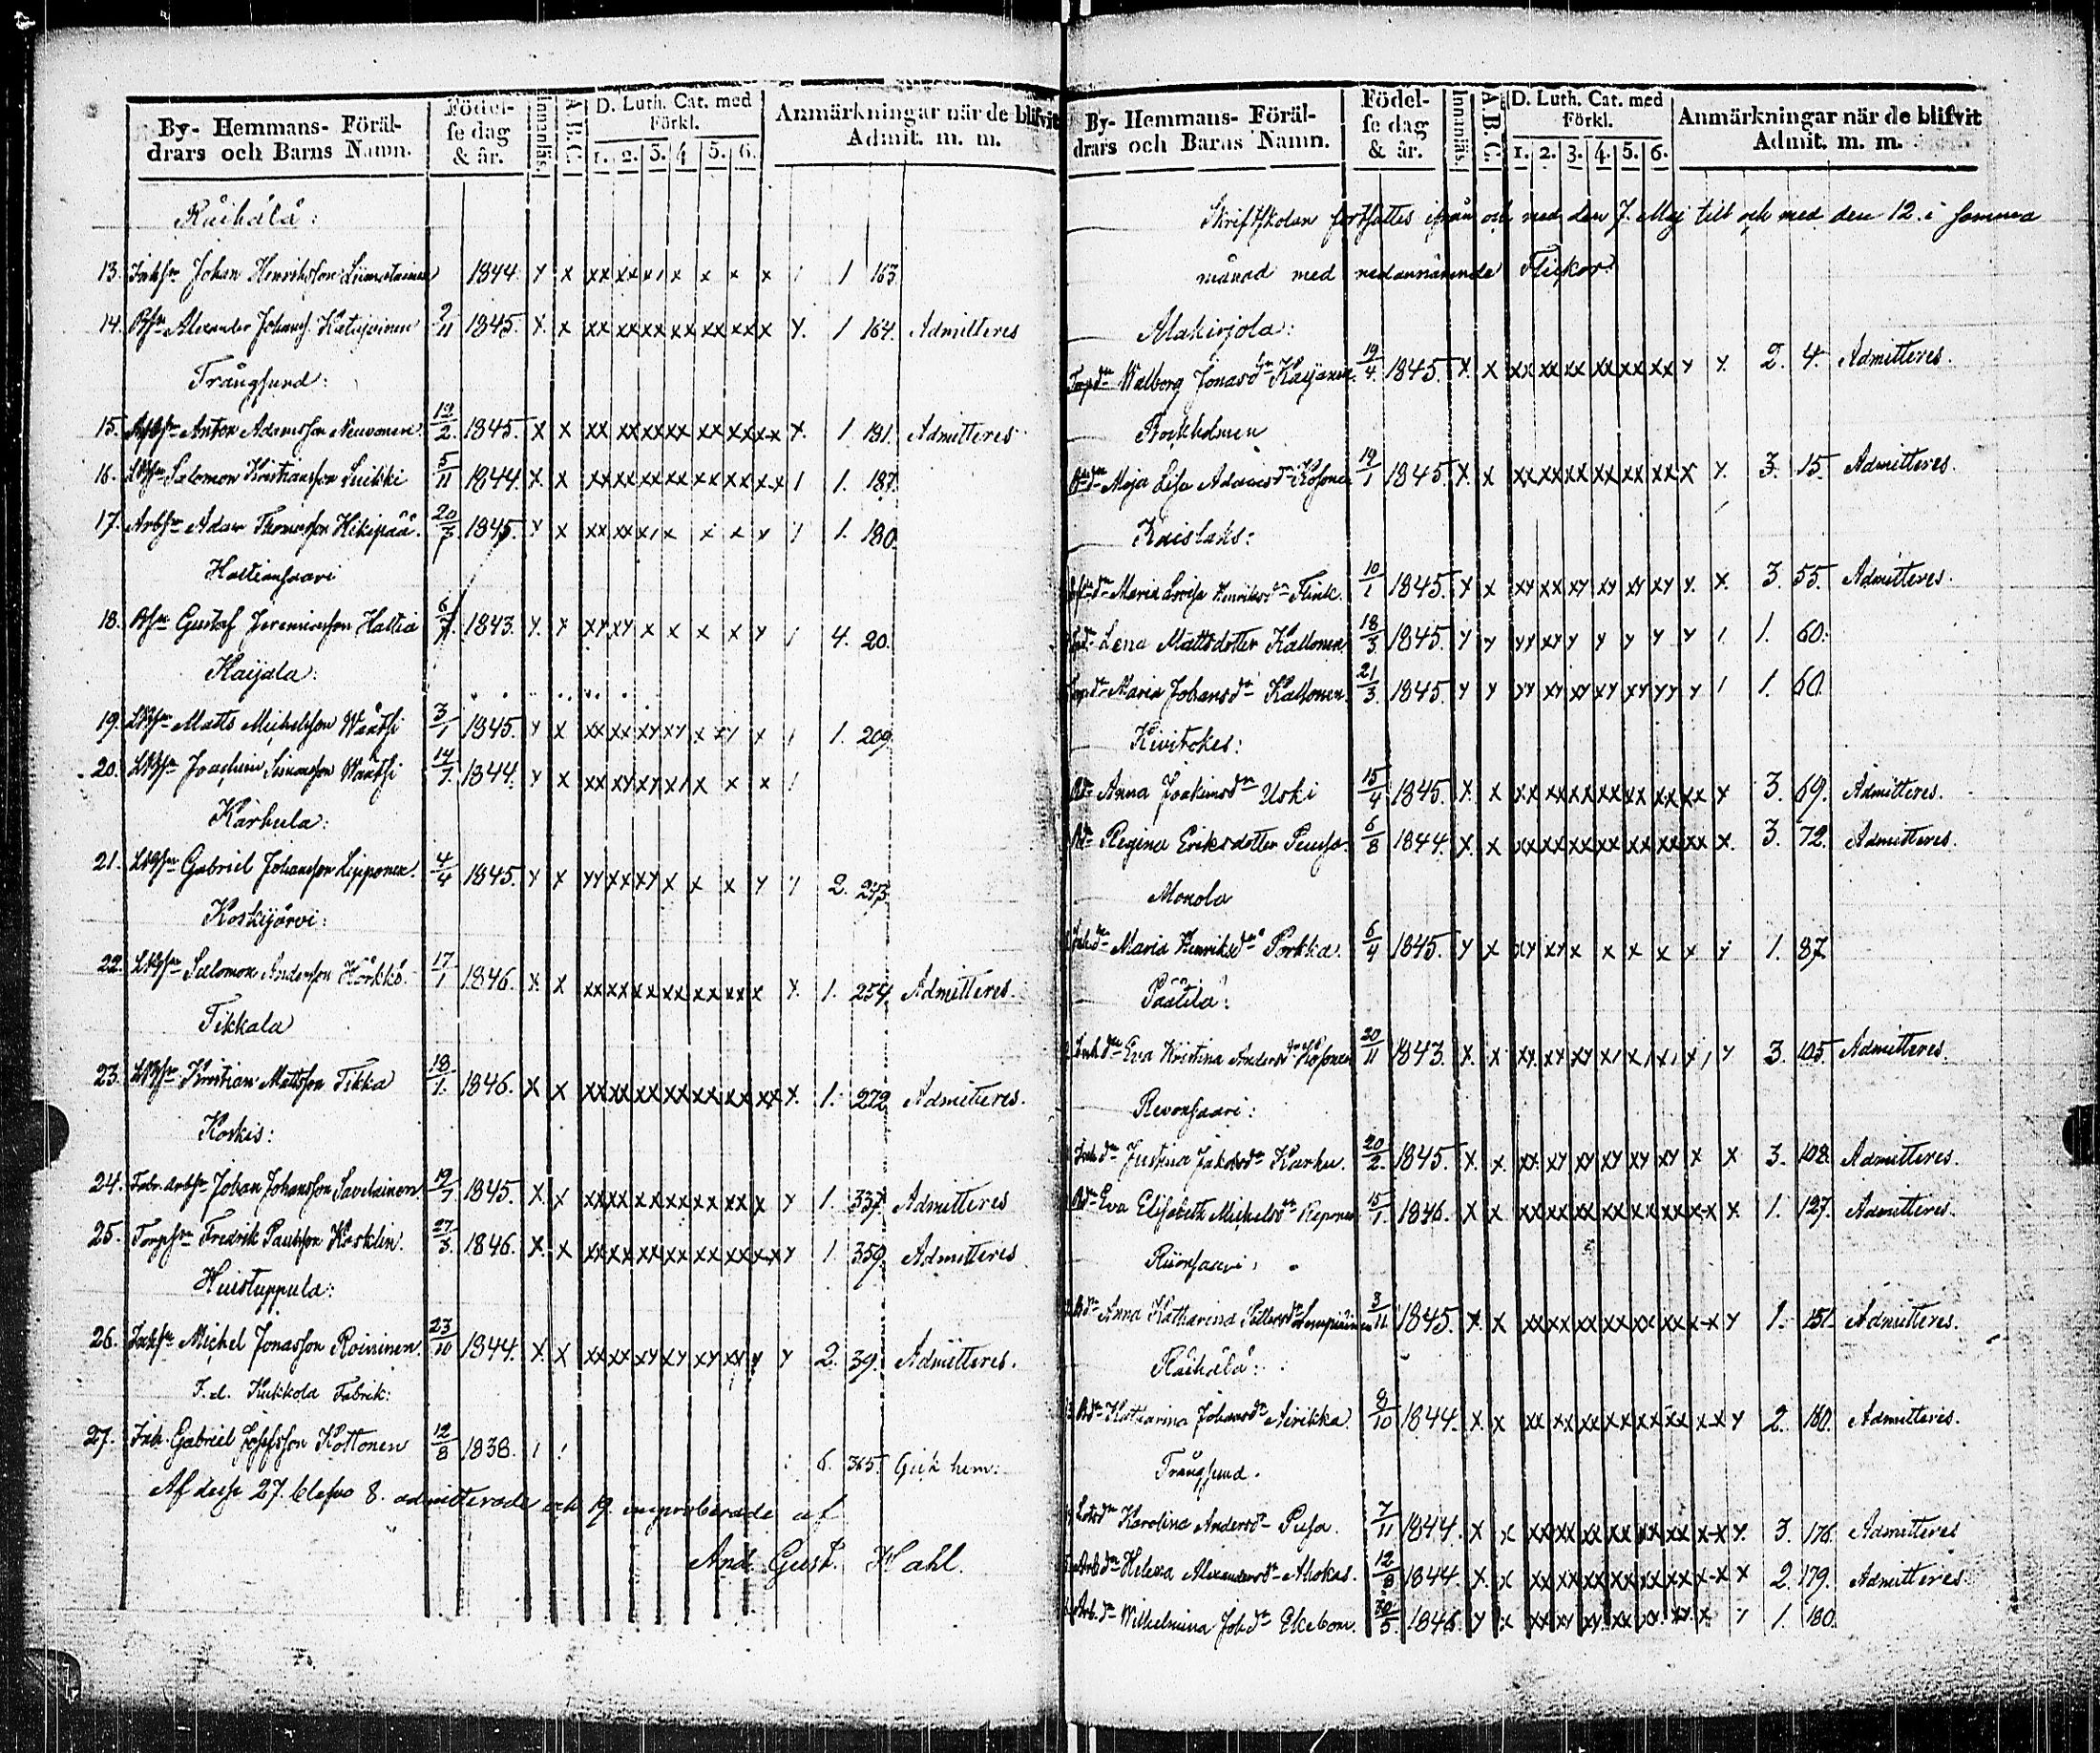 By- Hemmans- Föräldrars och Barns Namn. Födelse dag & år. Innanläs. A.B.C. D. Luth. Cat. med Förkl. 1. 2. 3. 4. 5. 6. Anmärkningar när de blifvit Admit. m. m.
Räihälä:
13. Johan Henriksson 1844 x x xx xx x x x x x 1 163.
14. Bsn Alexander Johans. 2/11 1845. x x xx xx xx xx xx xx x x. 1 164. Admitteres
Trångsund:
15. Arbsn Anton Adamsson Neuvonen 12/2 1845. x x xx xx xx xx xx xx xx x. 1. 191. Admitteres
16. Salomon Kristiansson Suikki 5/11 1844. x x xx xx xx xx xx xx xx 1. 187.
17. Arbsn Adam Thomasson Hikipää. 20/3 1845. x x xx xx x x x x 1. 180.
Haltiansaari
18. Bsn Gustaf Jeremiasson Haltia 1843. x. x xx xx x x x x x 4. 20.
Kaijala:
19. Matts Michelsson Wäätsi 3/1 1845. x x xx xx xx xx x xx x 1. 209.
20. Joachim Simonsson Wäätsi 14/7. 1844. x x xx xx xx x x x x
Karhula:
21. Gabriel Johansson Lipponen. 4/4 1845. x x xx xx xx x x x x 2.
Koskijärvi:
22. Salomon Andersson Härkkö. 17/1 1846. x. x xx xx xx xx xx xx x x. 1. 254. Admitteres.
Tikkala
23. Kristian Mattsson Tikka 18/1. 1846. x x xx xx xx xx xx xx xx x. 1. 272. Admitteres.
Koskis:
24. Fabr. arbsn Johan Johansson Savelainen 1845. x. x xx xx xx xx xx xx x x 1. 337. Admitteres
25. Torpsn Fredrik Paulsson Kosklin. 27/3. 1846. x. x xx xx xx xx xx xx xx x 1. 359. Admitteres
Huistuppula:
26. Inhsn Michel Jonasson Roininen. 23/10 1844. x. x xx xx xx xx xx xx x x 2. 39. Admitteres.
F. d. Kukkola Fabrik:
27. Inh. Gabriel Josefsson Kottonen 12/8 1838. 6. 365. Gick hem:
Af desse 27. blefvo 8. admitterade och 19. improberade af
And. Gust. Hahl.
By- Hemmans- Föräldrars och Barns Namn. Födelse dag & år. Innanläs. A.B.C. D. Luth. Cat. med Förkl. 1. 2. 3. 4. 5. 6. Anmärkningar när de blifvit Admit. m. m.
Skriftskolan fortsattes ifrån och med den 7. Maj till och med den 12. i samma
månad med nedannämnde Flickor.
Alakirjola:
Torpdr Walborg Jonasdr 19/4. 1845. x. x xx xx xx xx xx xx x x. 2. 4. Admitteres.
Stockholmen
Maja Lisa Adamsdr Kosonen 19/1 1845. x. x xx xx xx xx xx xx x x. 3. 15. Admitteres.
Kaislaks:
Maria Lovisa Henriksdr Flink. 10/1 1845. x x xx xx xx xx xx xx x. x. 3. 55. Admitteres.
Lena Mattsdotter Kallonen 18/3 1845. x x xx xx x x x x 1. 60.
Maria Johansdr Kallonen 21/3. 1845. x x xx xx xx xx xx xx x 1. 60.
Kivitokes:
Bdr Anna Joakimsdr Uski 15/4 1845. x. x xx xx xx xx xx xx xx x 3. 69. Admitteres.
Bdr Regina Eriksdotter Peusa. 6/8 1844. x. x xx xx xx xx xx xx xx x. 3. 72. Admitteres.
Monola
Maria Henriksdr Porkka. 6/4 1845. x x xx xx x x x x x x 1. 87.
Päätilä:
Inhdr Eva Kristina Andersdr Kosonen 20/11 1843. x. x xx xx xx x x x x x 3. 105. Admitteres.
Revonsaari:
Inhdr Justina Jakobsdr Karhu. 20/2. 1845. x x xx xx xx xx xx xx x x 3. 108. Admitteres.
Bdr Eva Elisabeth Michelsdr Reponen 15/1 1846. x x xx xx xx xx xx xx xx x 1. 127. Admitteres.
Riionsaari:
Bdr Anna Katharina 3/11 1845. x x xx xx xx xx xx xx xx x 1. 151. Admitteres.
Räihälä:
Bdr Katharina Johansdr Mirikka. 8/10 1844. x. x xx xx xx xx xx xx xx x 2. 160. Admitteres.
Trångsund.
Lotsdr Karolina Andersdr Pusa. 7/11 1844. x x xx xx xx xx xx xx xx x. 3. 176. Admitteres
Arbdr Helena Alexandersdr Ahokas. 12/8 1844. x. x xx xx xx xx xx xx xx x 2. 179. Admitteres.
Arb.dr Wilhelmina Johdr Ekebom. 30/5. 1846. x x xx xx xx xx xx xx x x 1. 180.